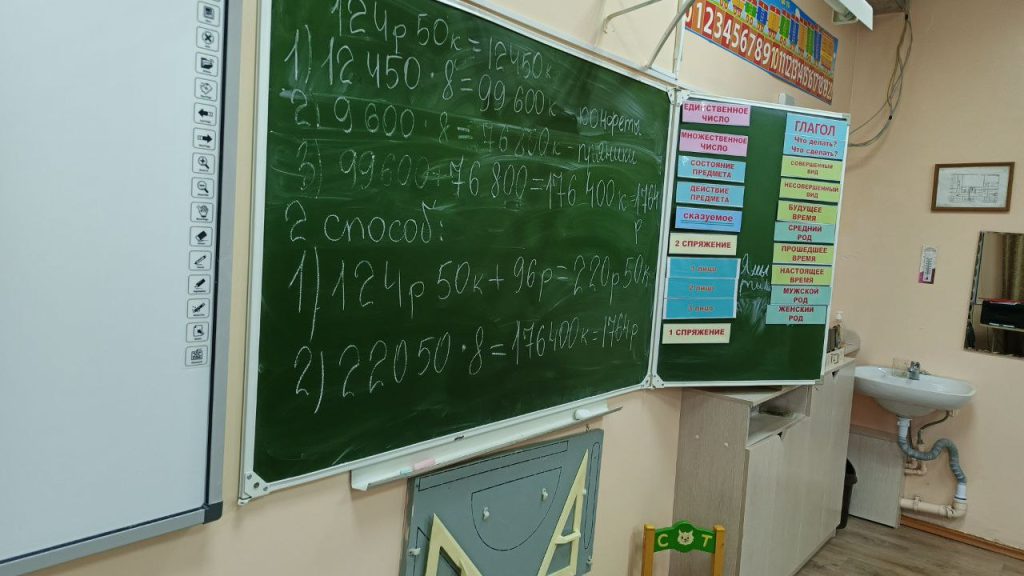 124р 50к = 12450к
1) 12 450 · 8 = 99 600к – конфеты
2) 9 600 · 8 = 76 800к – пряники
3) 99600 + 76 800 = 176 400к = 1764
р
2 способ:
1) 124р 50к + 96р = 220р 50к
2) 22050 · 8 = 176400к = 1764р
ЕДИНСТВЕННОЕ
ЧИСЛО
МНОЖЕСТВЕННОЕ
ЧИСЛО
СОСТОЯНИЕ
ПРЕДМЕТА
ДЕЙСТВИЕ
ПРЕДМЕТА
сказуемое
2 СПРЯЖЕНИЕ
1 лицо
2 лицо
3 лицо
1 СПРЯЖЕНИЕ
Я мы
ГЛАГОЛ
Что делать?
Что сделать?
СОВЕРШЕННЫЙ
ВИД
НЕСОВЕРШЕННЫЙ
ВИД
БУДУЩЕЕ
ВРЕМЯ
СРЕДНИЙ
РОД
ПРОШЕДШЕЕ
ВРЕМЯ
НАСТОЯЩЕЕ
ВРЕМЯ
МУЖСКОЙ
РОД
ЖЕНСКИЙ
РОД
0 1 2 3 4 5 6 7 8 9 10 11 12 13 14 15 16 17 18
С Т